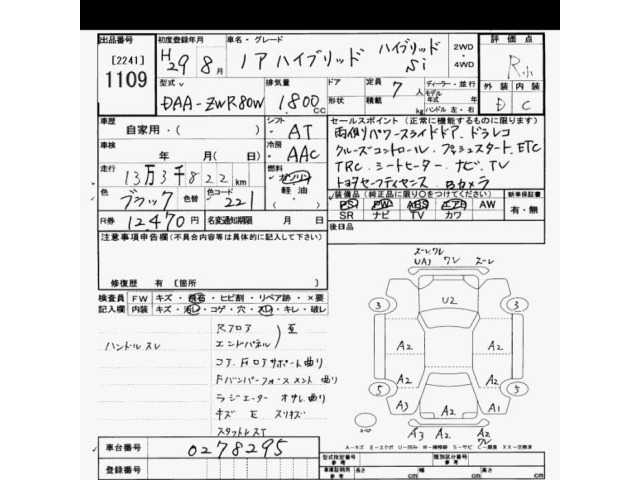 出品番号 初度登録年月 車名・グレード 2WD 評価点
[2241] H29 8月 ノアハイブリッド ハイブリッド Si 4WD R
1109 型式 排気量 ドア 定員 7人 ディーラー・並行 外装 内装
DAA-ZWR80W 1800cc 形状 積載 kg モデル 年式 年 D C
ハンドル 左・右
車歴 シフト セールスポイント (正常に機能するものに限ります)
自家用・( ) AT 両側パワースライドドア、ドラレコ
車検 冷房 クルーズコントロール プッシュスタート、ETC
年 月(日) AAC TRC シートヒーター ナビ、TV
走行 燃料 トヨタセーフティセンス Bカメラ
13万3千822km ガソリン 軽油
色 ブラック 色替 色コード 221 装備品(純正品に限り○をつけてください) 新車保証書
PS PW ABS エアB AW 有・無
R券 12,470円 名変通知期限 月 日 SR ナビ TV カワ
注意事項申告欄(不具合内容等は具体的に記入して下さい) 後日品
修復歴 有 [箇所
検査員 FW キズ・飛石・ヒビ割・リペア跡・×要
記入欄 内装 キズ・汚レ・コゲ・穴・スレ・キレ・破レ
Rフロア
ハンドルスレ エンドパネル
コア、Fフロアサポート曲り
Fバンパーフォースメント曲り
ラジエーターオサエ曲り
キズ E スリキズ
UA3 ワレ スーレ
U2
3 3
A2 A2 A2
A2 A2
5 A2 5
A3 A2 A1
A3 A2 A2
ワレ
スペア
A-キズ E-エクボ U-凹み W-補修跡 S-サビ C-腐食 XX-交換済
車台番号 0278295
登録番号
型式指定番号 参考 類別区分番号 参考
車庫証明用 参考 長さ cm 幅 cm 高さ cm